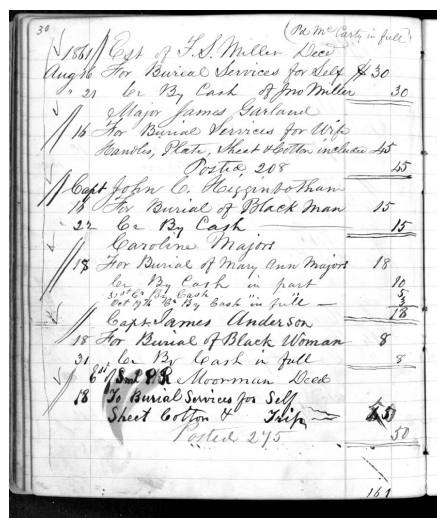 30 (Pd McCarty in full)
1861 Est of F.S. Miller Decd
Aug 16 For Burial Services for Self $30
" 21 Cr By Cash of Jno Miller 30
Major James Garland
16 For Burial Services for Wife
Handles, Plate, Sheet & Cotton included 45
Posted 208 45
Capt John C. Higginbotham
14 For Burial of Black Man 15
22 Cr By Cash 15
Caroline Majors
18 For Burial of Mary Ann Majors 18
Cr By Cash in part 10
31st Cr By Cash 5
Oct 19th Cr By Cash in full 3
18
Capt James Anderson
18 For Burial of Black Woman 8
31 Cr By Cash in full 8
Est of Saml Moorman Decd
18 To Burial Services for Self
Sheet Cotton & Trip 50
Posted 275 50
161